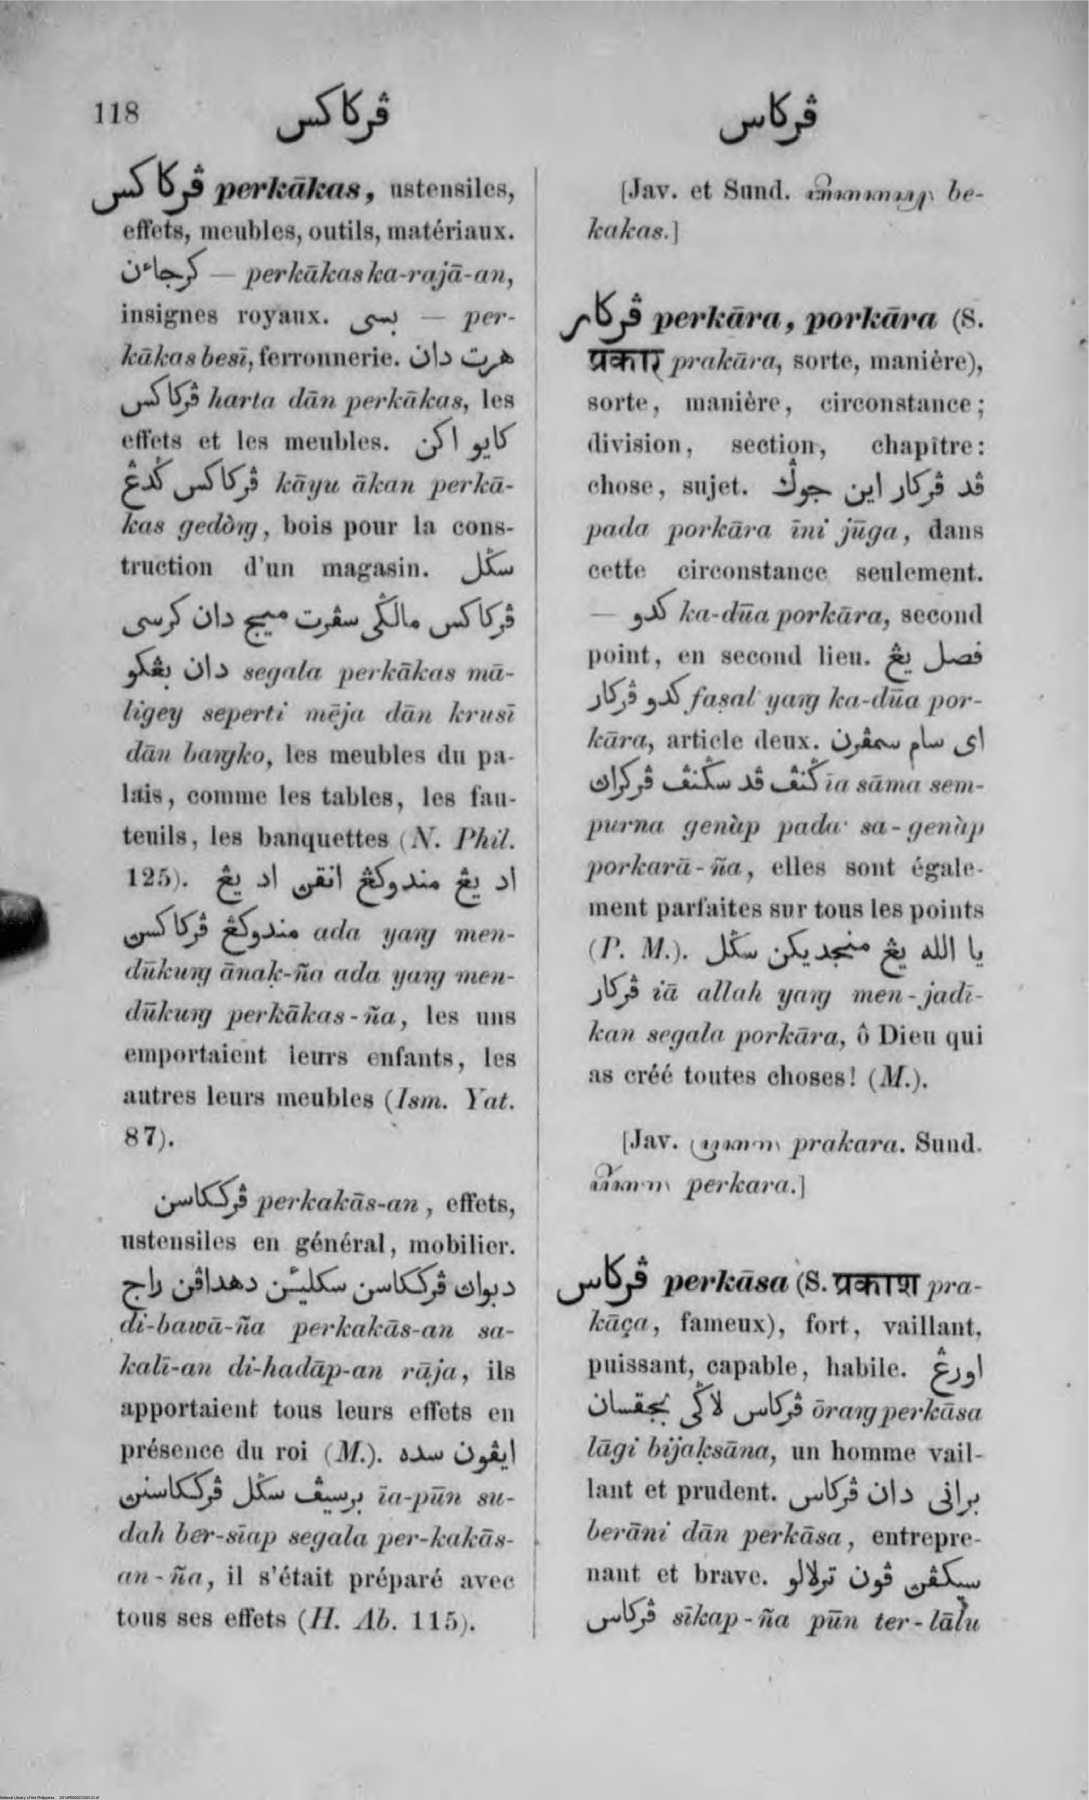 118 ڤركاكس ڤركاس
ڤركاكس perkākas, ustensiles,
effets, meubles, outils, matériaux.
كرجاءن — perkākas ka-rajā-an,
insignes royaux. بسي — per-
kākas besī, ferronnerie. هرت دان
ڤركاكس harta dān perkākas, les
effets et les meubles. كايو اكن
ڤركاكس ݢدڠ kāyu ākan perkā-
kas gedòng, bois pour la cons-
truction d'un magasin. سݢل
ڤركاكس ماليݢي سڤرت ميج دان كرسي
دان بڠكو segala perkākas mā-
ligey seperti mēja dān krusī
dān bangko, les meubles du pa-
lais, comme les tables, les fau-
teuils, les banquettes (N. Phil.
125). اد يڠ مندوكڠ انقن اد يڠ
مندوكڠ ڤركاكسن ada yang men-
dūkung ānaḳ-ña ada yang men-
dūkung perkākas-ña, les uns
emportaient leurs enfants, les
autres leurs meubles (Ism. Yat.
87).
ڤركـكاسن perkakās-an, effets,
ustensiles en général, mobilier.
دبوان ڤركـكاسن سكلين دهداڤن راج
di-bawā-ña perkakās-an sa-
kalī-an di-hadāp-an rāja, ils
apportaient tous leurs effets en
présence du roi (M.). ايڤون سده
برسيڤ سݢل ڤركـكاسنن īa-pūn su-
dah ber-sīap segala per-kakās-
an-ña, il s'était préparé avec
tous ses effets (H. Ab. 115).
[Jav. et Sund. be-
kakas.]
ڤركار perkāra, porkāra (S.
प्रकार prakāra, sorte, manière),
sorte, manière, circonstance;
division, section, chapître:
chose, sujet. ڤد ڤركار اين جوݢ
pada porkāra īni jūga, dans
cette circonstance seulement.
— كدو ka-dūa porkāra, second
point, en second lieu. فصل يڠ
كدو ڤركار faṣal yang ka-dūa por-
kāra, article deux. اي سام سمڤرن
ݢنڤ ڤد سݢنڤ ڤركران īa sāma sem-
purna genàp pada sa-genàp
porkarā-ña, elles sont égale-
ment parfaites sur tous les points
(P. M.). يا الله يڠ منجديكن سݢل
ڤركار iā allah yang men-jadī-
kan segala porkāra, ô Dieu qui
as créé toutes choses! (M.).
[Jav. prakara. Sund.
perkara.]
ڤركاس perkāsa (S. प्रकाश pra-
kāça, fameux), fort, vaillant,
puissant, capable, habile. اورڠ
ڤركاس لاݢي بجقسان ōrang perkāsa
lāgi bijaḳsāna, un homme vail-
lant et prudent. براني دان ڤركاس
berāni dān perkāsa, entrepre-
nant et brave. سيكڤن ڤون ترلالو
ڤركاس sīkap-ña pūn ter-lālu